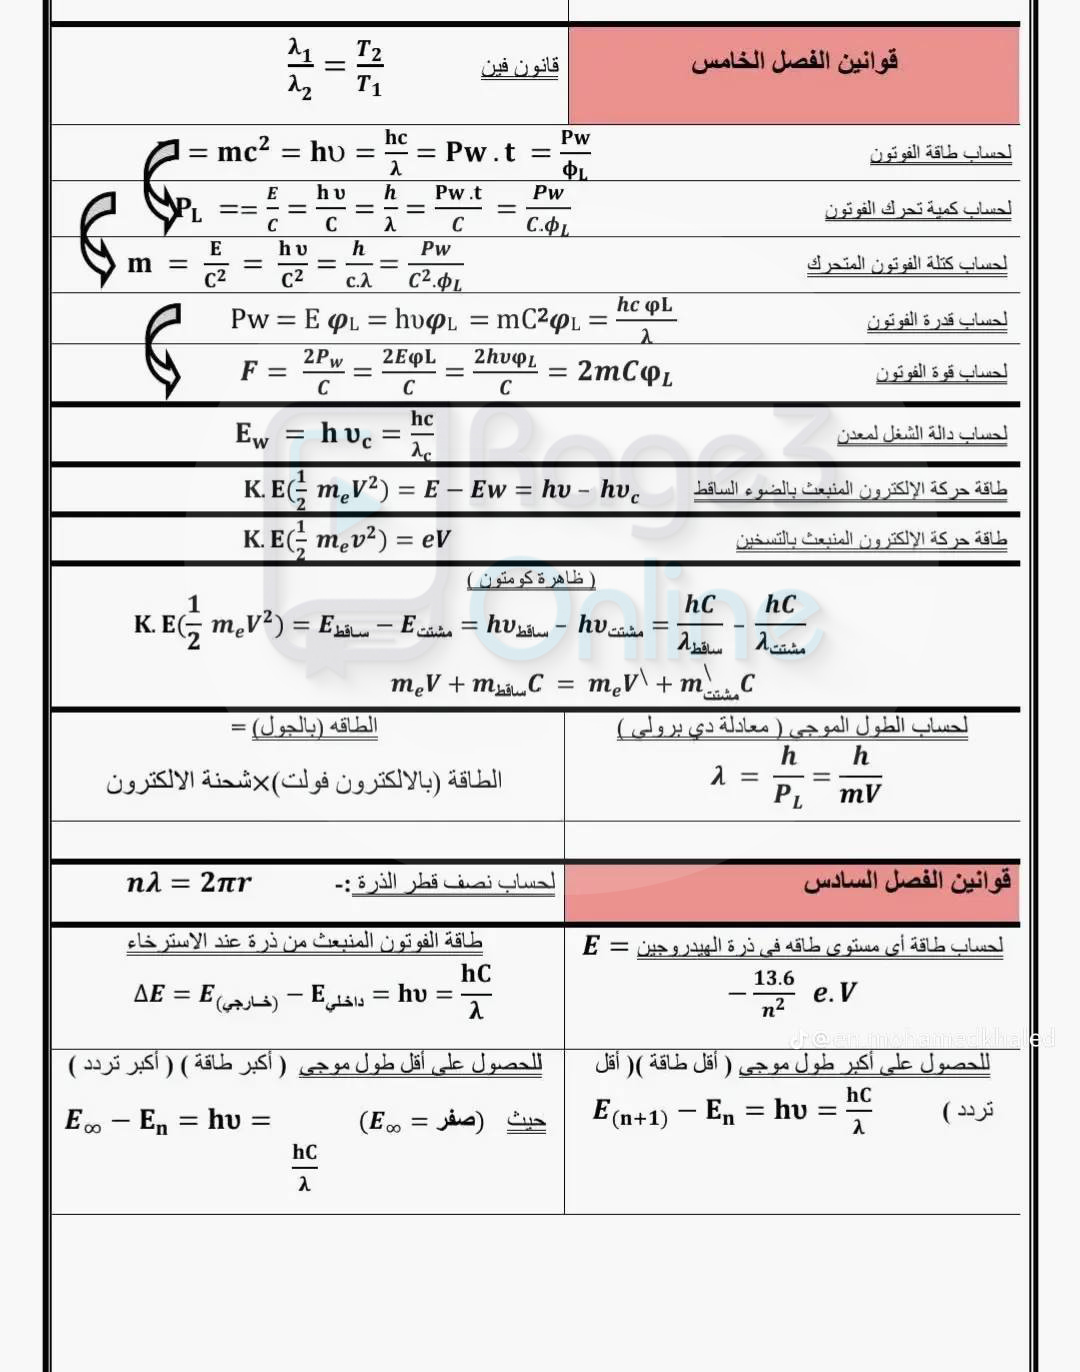 قوانين الفصل الخامس
قانون فين λ₁/λ₂ = T₂/T₁
لحساب طاقة الفوتون = mc² = hυ = hc/λ = Pw . t = Pw/ϕL
لحساب كمية تحرك الفوتون PL == E/C = hυ/C = h/λ = Pw.t/C = Pw/C.ϕL
لحساب كتلة الفوتون المتحرك m = E/C² = hυ/C² = h/c.λ = Pw/C².ϕL
لحساب قدرة الفوتون Pw = E φL = hυφL = mC²φL = hc φL/λ
لحساب قوة الفوتون F = 2Pw/C = 2EφL/C = 2hυφL/C = 2mCφL
لحساب دالة الشغل لمعدن Ew = hυc = hc/λc
طاقة حركة الإلكترون المنبعث بالضوء الساقط K.E(1/2 meV²) = E − Ew = hυ − hυc
طاقة حركة الإلكترون المنبعث بالتسخين K.E(1/2 mev²) = eV
( ظاهرة كومتون )
K.E(1/2 meV²) = Eساقط − Eمشتت = hυساقط − hυمشتت = hC/λساقط − hC/λمشتت
meV + mساقطC = meV\ + m\مشتتC
لحساب الطول الموجي ( معادلة دي برولي )
λ = h/PL = h/mV
الطاقه (بالجول) =
الطاقة (بالالكترون فولت)×شحنة الالكترون
قوانين الفصل السادس
لحساب نصف قطر الذرة :- nλ = 2πr
لحساب طاقة أي مستوى طاقه في ذرة الهيدروجين E =
− 13.6/n² e.V
طاقة الفوتون المنبعث من ذرة عند الاسترخاء
ΔE = E(خارجي) − Eداخلي = hυ = hC/λ
للحصول على أكبر طول موجي ( أقل طاقة )( أقل
تردد ) E(n+1) − En = hυ = hC/λ
للحصول على أقل طول موجي ( أكبر طاقة ) ( أكبر تردد )
حيث (E∞ = صفر) E∞ − En = hυ =
hC/λ
Page3
Online
@en.mohamedkhaled